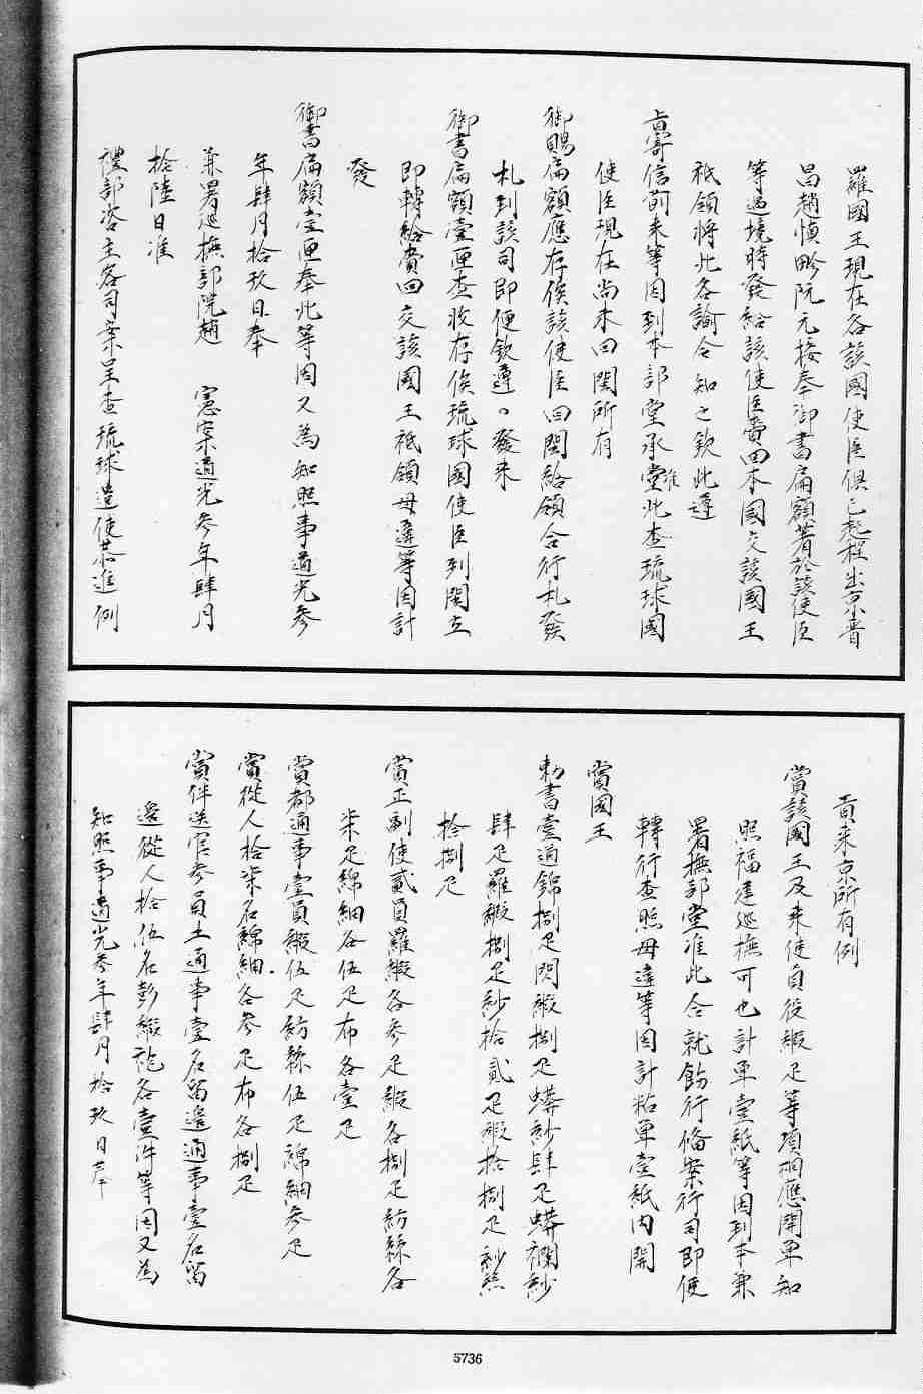 羅國王現在各該國使臣俱已起程出京着
昌趙慎畛阮元接奉御書扁額著於該使臣
等過境時發給該使臣賫回本國交該國王
祗領將此各諭令知之欽此遵
旨寄信前来等因到本部堂承准此查琉球國
使臣現在尚未回閩所有
御賜扁額應存俟該使臣回閩給領合行札發
札到該司即便欽遵發来
御書扁額壹匣查收存俟琉球國使臣到閩立
即轉給賫回交該國王祗領毋違等因計
發
御書扁額壹匣奉此等因又為知照事道光參
年肆月拾玖日奉
兼署巡撫部院趙 憲案道光參年肆月
拾陸日准
禮部咨主客司案呈查琉球遣使恭進例
貢来京所有例
賞該國王及来使員役緞疋等項相應開單知
照福建巡撫可也計單壹紙等因到本兼
署撫部堂准此合就飭行備案行司即便
轉行查照毋違等因計粘單壹紙内開
賞國王
勅書壹道錦捌疋閃緞捌疋蟒紗肆疋蟒襴紗
肆疋羅緞捌疋紗拾貳疋緞拾捌疋紡絲
拾捌疋
賞正副使貳員羅緞各參疋緞各捌疋紡絲各
柒疋綿紬各伍疋布各壹疋
賞都通事壹員緞伍疋紡絲伍疋綿紬參疋
賞從人拾柒名綿紬各參疋布各捌疋
賞伴送官參員土通事壹名留邊通事壹名留
邊從人拾伍名彭緞袍各壹件等因又為
知照事道光參年肆月拾玖日奉
5736